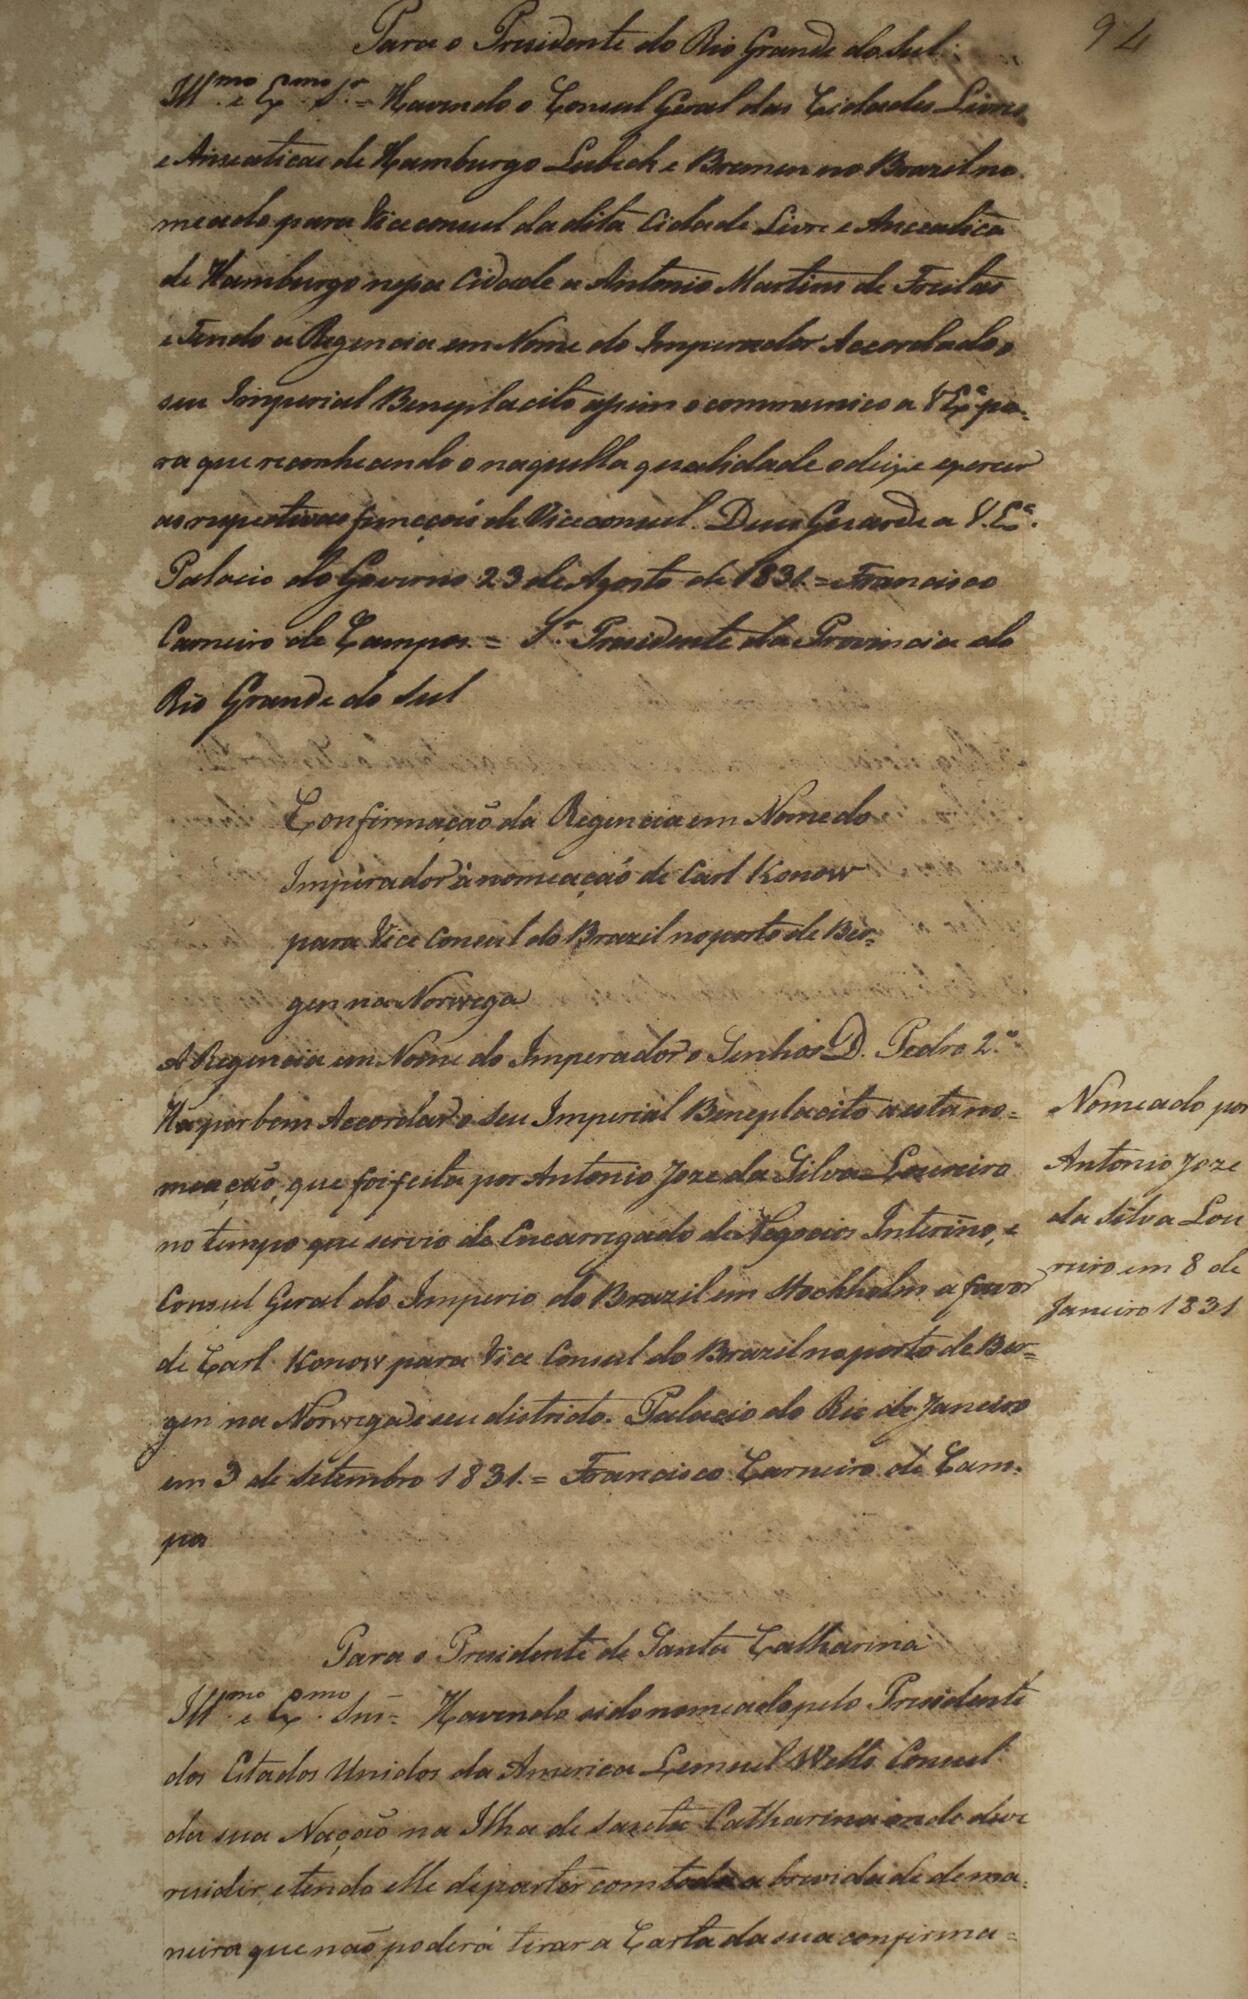 94
Para o Presidente do Rio Grande do Sul.
Illmo. e Exmo. Sr. = Havendo o Consul Geral das Cidades Livres
e Anseaticas de Hamburgo Lubeck e Bremen no Brazil no-
meado para Viceconsul da dita Cidade Livre e Anseatica
de Hamburgo nessa Cidade a Antonio Martins de Freitas
e Tendo a Regencia em Nome do Imperador Accordado o
seu Imperial Beneplacito assim o communico a V Exa. pa-
ra que reconhecendo o naquella qualidade o deixe exercer
as respectivas funcções de Viceconsul. Deus Guarde a V. Exa.
Palacio do Governo 23 de Agosto de 1831. = Francisco
Carneiro de Campos. = Sr. Presidente da Provincia do
Rio Grande do Sul
Confirmação da Regencia em Nome do
Imperador à nomeação de Carl Konow
para Vice Consul do Brazil no porto de Ber-
gen na Norwega
A Regencia em Nome do Imperador o Senhor D. Pedro 2.o
Ha por bem Accordar o seu Imperial Beneplacito a esta no=
meação, que foi feita por Antonio Joze da Silva Loureiro
no tempo que servio de Encarregado de Negocios Interino, e
Consul Geral do Imperio do Brazil em Stockholm a favor
de Carl Konow para Vice Consul do Brazil no porto de Ber=
gen na Norwega e seu districto. Palacio do Rio de Janeiro
em 3 de Setembro 1831. = Francisco Carneiro de Cam-
pos
Nomeado por
Antonio Joze
da Silva Lou
reiro em 8 de
Janeiro 1831
Para o Presidente de Santa Catharina
Illmo. e Exmo. Snr = Havendo sido nomeado pelo Presidente
dos Estados Unidos da America Lemuel Wells Consul
da sua Nação na Ilha de Santa Catharina onde deve
residir, e tendo elle de partir com toda a brevidade de ma-
neira que não poderá tirar a Carta da sua confirma=